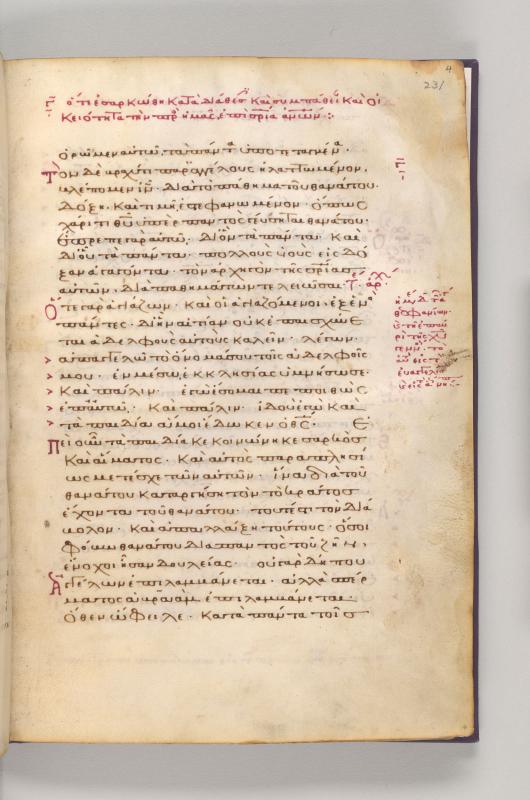 4
231
Γ ὅτι ἐσαρκώθη κατὰ διάθεσ καὶ συμπάθει καὶ οἰ
κειότητα τὴν πρ ἡμᾶς ἐπὶ σρία ἀνων :
ὁρῶμεν αὐτῶ, τὰ πάντα ὑποτεταγμένα.
Τὸν δὲ βραχύ τι παρ ἀγγέλους ἠλαττωμένον,
βλέπομεν ιν. διὰ τὸ πάθημα τοῦ θανάτου.
δόξη. καὶ τιμῆ ἐστεφανωμένον. ὅπως
χάριτι θυ ὑπὲρ παντὸς γεύσηται θανάτου.
ἔπρεπε γὰρ αὐτῶ. δι ὃν τὰ πάντα. καὶ
δι οὗ τὰ πάντα. πολλοὺς υἱοὺς εἰς δό
ξαν ἀγαγόντα. τὸν ἀρχηγὸν τῆς σριας
αὐτῶν. διὰ παθημάτων τελειῶσαι.
Ὅ τε γὰρ ἁγιάζων. καὶ οἱ ἁγιαζόμενοι. ἐξ ἑνὸς
πάντες. δι ἣν αἰτίαν οὐκ ἐπαισχύνε
ται ἀδελφοὺς αὐτοὺς καλεῖν. λέγων.
> ἀπαγγελῶ τὸ ὄνομά σου τοῖς ἀδελφοῖς
> μου. ἐν μέσω ἐκκλησίας ὑμνήσω σε.
> καὶ πάλιν. ἐγὼ ἔσομαι πεποιθὼς
> ἐπ αὐτῶ. καὶ πάλιν. ἰδοὺ ἐγὼ καὶ
> τὰ παιδία ἅ μοι ἔδωκεν ὁ θς. Ἐ
πεὶ οὖν τὰ παιδία κεκοινώνηκε σαρκὸς
καὶ αἵματος. καὶ αὐτὸς παραπλησί
ως μετέσχε τῶν αὐτῶν. ἵνα διὰ τοῦ
θανάτου καταργήση τὸν τὸ κράτος
ἔχοντα τοῦ θανάτου. τουτέστι τὸν διά
βολον. καὶ ἀπαλλάξη τούτους. ὅσοι
φόβω θανάτου διὰ παντὸς τοῦ ζῆν,
ἔνοχοι ἦσαν δουλείας. οὐ γὰρ δήπου
ἀγγέλων ἐπιλαμβάνεται. ἀλλὰ σπέρ
ματος ἀβραὰμ ἐπιλαμβάνεται.
ὅθεν ὤφειλε. κατὰ πάντα τοῖς